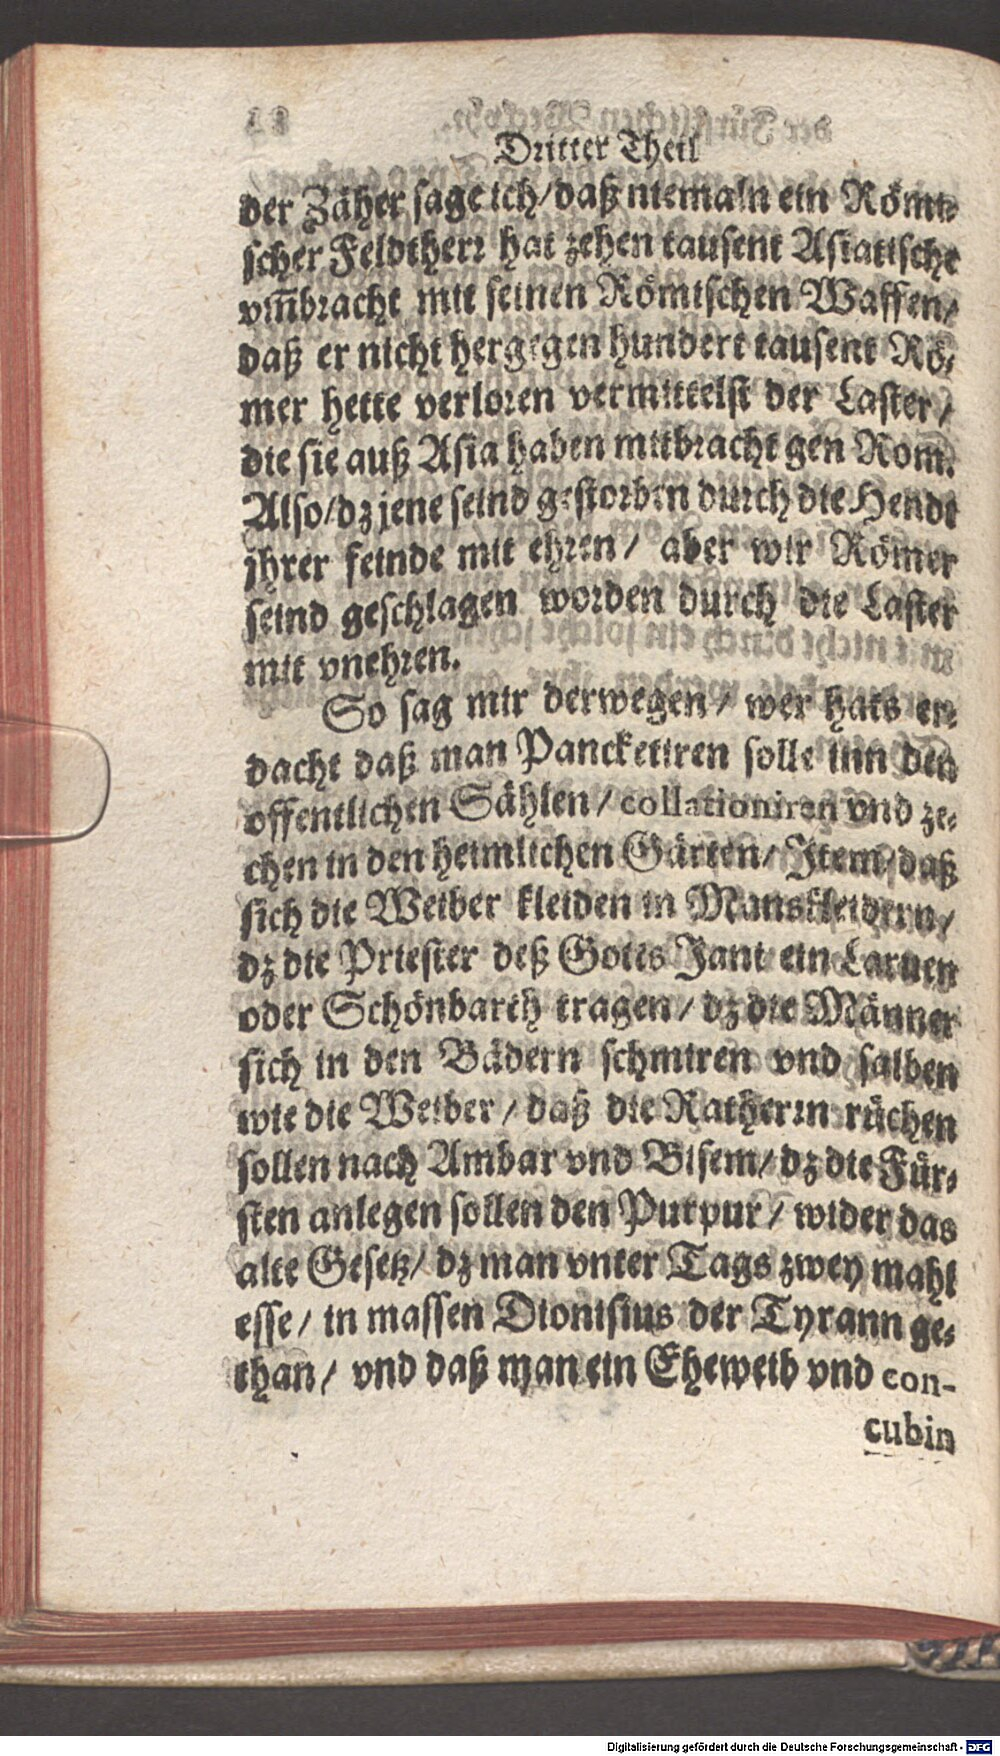 Dritter Theil
der Zäher sage ich/daß niemaln ein Römi-
scher Feldtherr hat zehen tausent Asiatische
vm̃bracht mit seinen Römischen Waffen/
daß er nicht hergegen hundert tausent Rö-
mer hette verloren vermittelst der Laster/
die sie auß Asia haben mitbracht gen Rom.
Also/dz jene seind gestorben durch die Hende
jhrer feinde mit ehren/ aber wir Römer
seind geschlagen worden durch die Laster
mit vnehren.
So sag mir derwegen/ wer hats er-
dacht daß man Pancketiren solle inn den
offentlichen Sählen/ collationiren vnd ze-
chen in den heimlichen Gärten/ Item/daß
sich die Weiber kleiden in Manskleidern/
dz die Priester deß Gotes Jani ein Laruen
oder Schönbarth tragen/ dz die Männer
sich in den Bädern schmiren vnd salben
wie die Weiber/ daß die Ratherrn rüchen
sollen nach Ambar vnd Bisem/ dz die Für-
sten anlegen sollen den Purpur/ wider das
alte Gesetz/ dz man vnter Tags zwey mahl
esse/ in massen Dionisius der Tyrann ge-
than/ vnd daß man ein Eheweib vnd con-
cubin
Digitalisierung gefördert durch die Deutsche Forschungsgemeinschaft - DFG